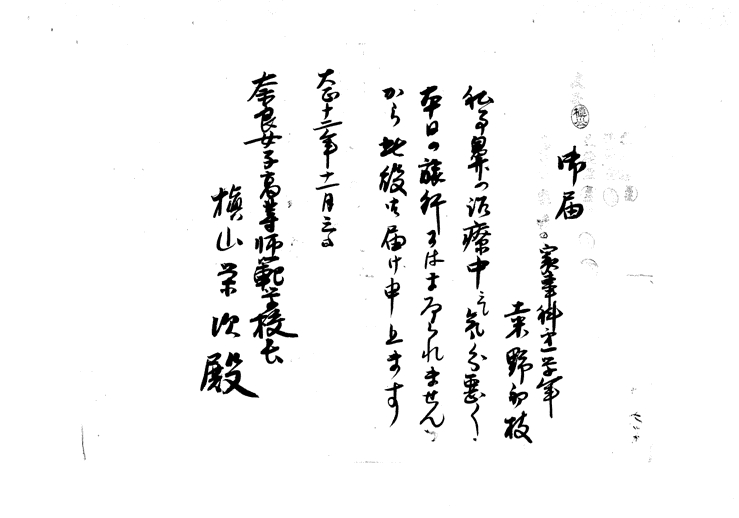 御届
家事科第一学年
桒野初枝
私事鼻の治療中にて気分悪く
本日の旅行には出られません
から此段御届け申上ます
大正十二年十一月三日
奈良女子高等師範学校長
槇山栄次殿